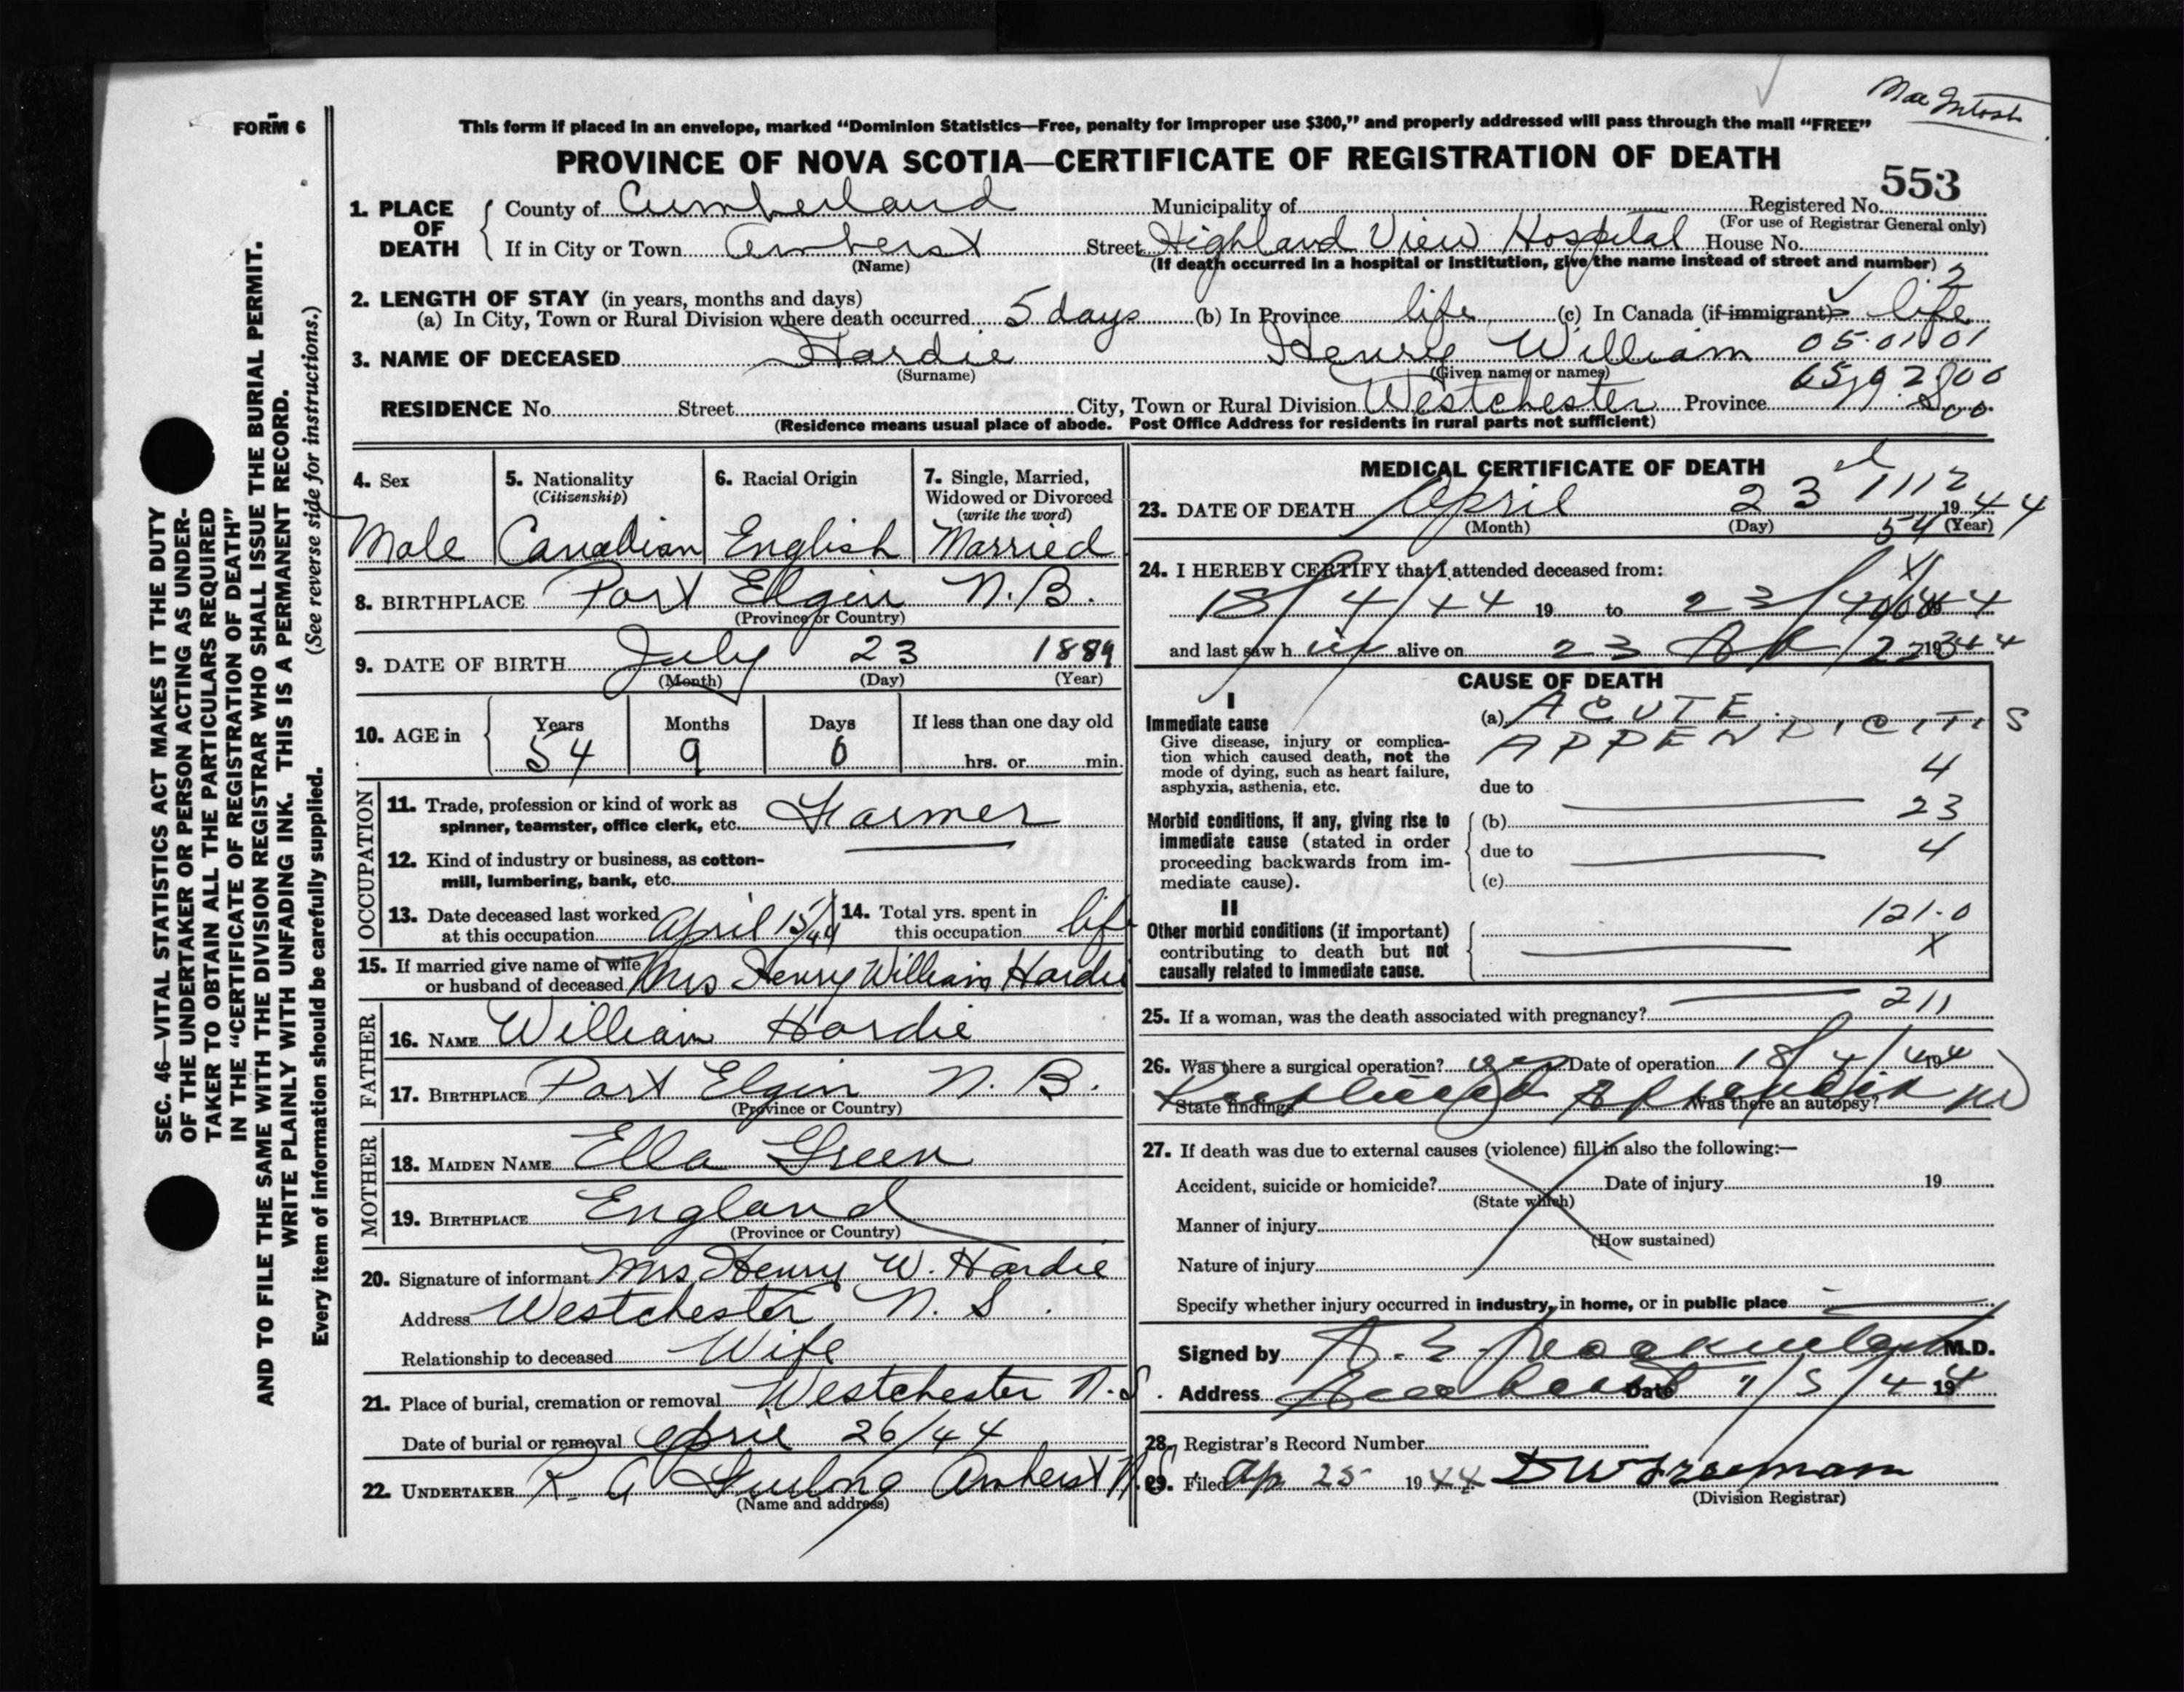 Mac Intosh
FORM 6
This form if placed in an envelope, marked "Dominion Statistics—Free, penalty for improper use $300," and properly addressed will pass through the mail "FREE"
PROVINCE OF NOVA SCOTIA—CERTIFICATE OF REGISTRATION OF DEATH
553
1. PLACE OF DEATH { County of Cumberland Municipality of Registered No.
(For use of Registrar General only)
If in City or Town Amherst Street Highland View Hospital House No.
(Name) (If death occurred in a hospital or institution, give the name instead of street and number)
2
2. LENGTH OF STAY (in years, months and days)
(a) In City, Town or Rural Division where death occurred 5 days (b) In Province life (c) In Canada (if immigrant) life
05.01001
3. NAME OF DECEASED Hardie Henry William
(Surname) (Given name or names)
RESIDENCE No. Street City, Town or Rural Division Westchester Province
(Residence means usual place of abode. Post Office Address for residents in rural parts not sufficient)
SEC. 46—VITAL STATISTICS ACT MAKES IT THE DUTY
OF THE UNDERTAKER OR PERSON ACTING AS UNDER-
TAKER TO OBTAIN ALL THE PARTICULARS REQUIRED
IN THE "CERTIFICATE OF REGISTRATION OF DEATH"
AND TO FILE THE SAME WITH THE DIVISION REGISTRAR WHO SHALL ISSUE THE BURIAL PERMIT.
WRITE PLAINLY WITH UNFADING INK. THIS IS A PERMANENT RECORD.
Every item of information should be carefully supplied. (See reverse side for instructions.)
4. Sex 5. Nationality 6. Racial Origin 7. Single, Married,
(Citizenship) Widowed or Divorced
(write the word)
Male Canadian English Married
8. BIRTHPLACE Port Elgin N.B.
(Province or Country)
9. DATE OF BIRTH July 23 1889
(Month) (Day) (Year)
10. AGE in { Years Months Days If less than one day old
54 9 0 hrs. or min.
OCCUPATION
11. Trade, profession or kind of work as
spinner, teamster, office clerk, etc. Farmer
12. Kind of industry or business, as cotton-
mill, lumbering, bank, etc.
13. Date deceased last worked 14. Total yrs. spent in
at this occupation April 15/44 this occupation life
15. If married give name of wife
or husband of deceased Mrs Henry William Hardie
FATHER
16. NAME William Hardie
17. BIRTHPLACE Port Elgin N. B.
(Province or Country)
MOTHER
18. MAIDEN NAME Ella Green
19. BIRTHPLACE England
(Province or Country)
20. Signature of informant Mrs Henry W. Hardie
Address Westchester N. S.
Relationship to deceased Wife
21. Place of burial, cremation or removal Westchester N.S.
Date of burial or removal April 26/44
22. UNDERTAKER R. A Amherst N.S.
(Name and address)
MEDICAL CERTIFICATE OF DEATH
1112
23. DATE OF DEATH April 23 1944
(Month) (Day) (Year)
54
24. I HEREBY CERTIFY that I attended deceased from:
18/4/44 19 to 23/4/44
and last saw h im alive on 23 1944
CAUSE OF DEATH
I
Immediate cause (a) ACUTE
APPENDICITIS
Give disease, injury or complica-
tion which caused death, not the
mode of dying, such as heart failure,
asphyxia, asthenia, etc.
4
due to
23
Morbid conditions, if any, giving rise to
immediate cause (stated in order
proceeding backwards from im-
mediate cause).
(b)
due to
4
(c)
II
121.0
Other morbid conditions (if important)
contributing to death but not
causally related to immediate cause.
X
211
25. If a woman, was the death associated with pregnancy?
26. Was there a surgical operation? yes Date of operation 18/4/44
State findings Ruptured Appendix Was there an autopsy? no
27. If death was due to external causes (violence) fill in also the following:—
Accident, suicide or homicide? Date of injury 19
(State which)
Manner of injury
(How sustained)
Nature of injury
Specify whether injury occurred in industry, in home, or in public place
Signed by M.D.
Address Amherst Date 19
28. Registrar's Record Number
29. Filed Ap 25 1944
(Division Registrar)